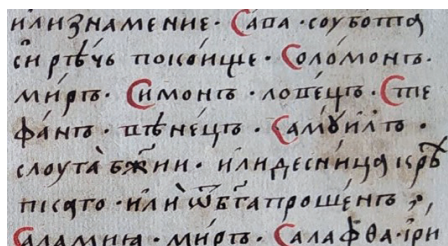 илизнамение · Сапа · соуботꙗ
си рѣ́чь поко́ище · Соломо́нъ ·
ми́ръ · Си́монъ · лове́цъ · Сте
фа́нъ · вѣне́цъ · Самꙋи́лъ ·
слоута̀ бж҃ии · илидесни́цꙗ
пїсато · или
Саламиꙗ · миръ · Сала